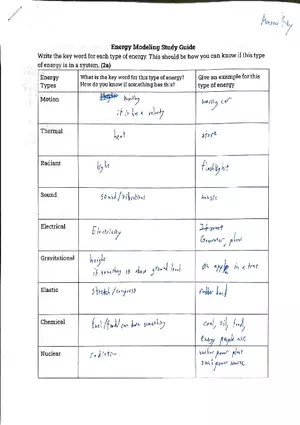 Answer Key
Energy Modeling Study Guide
Write the key word for each type of energy. This should be how you can know if this type
of energy is in a system. (2a)
Energy Types
What is the key word for this type of energy? How do you know if something has this?
Give an example for this type of energy
Motion
moving
it is has a velocity
moving car
Thermal
heat
stove
Radiant
light
flashlight
Sound
sound/vibrations
music
Electrical
Electricity
Generator, phone
Gravitational
height
if something is above ground level
an apple in a tree
Elastic
stretch/compress
rubber band
Chemical
fuel/food/can burn something
coal, oil, food,
Energy people use
Nuclear
radiation
nuclear power plant
sun's power source